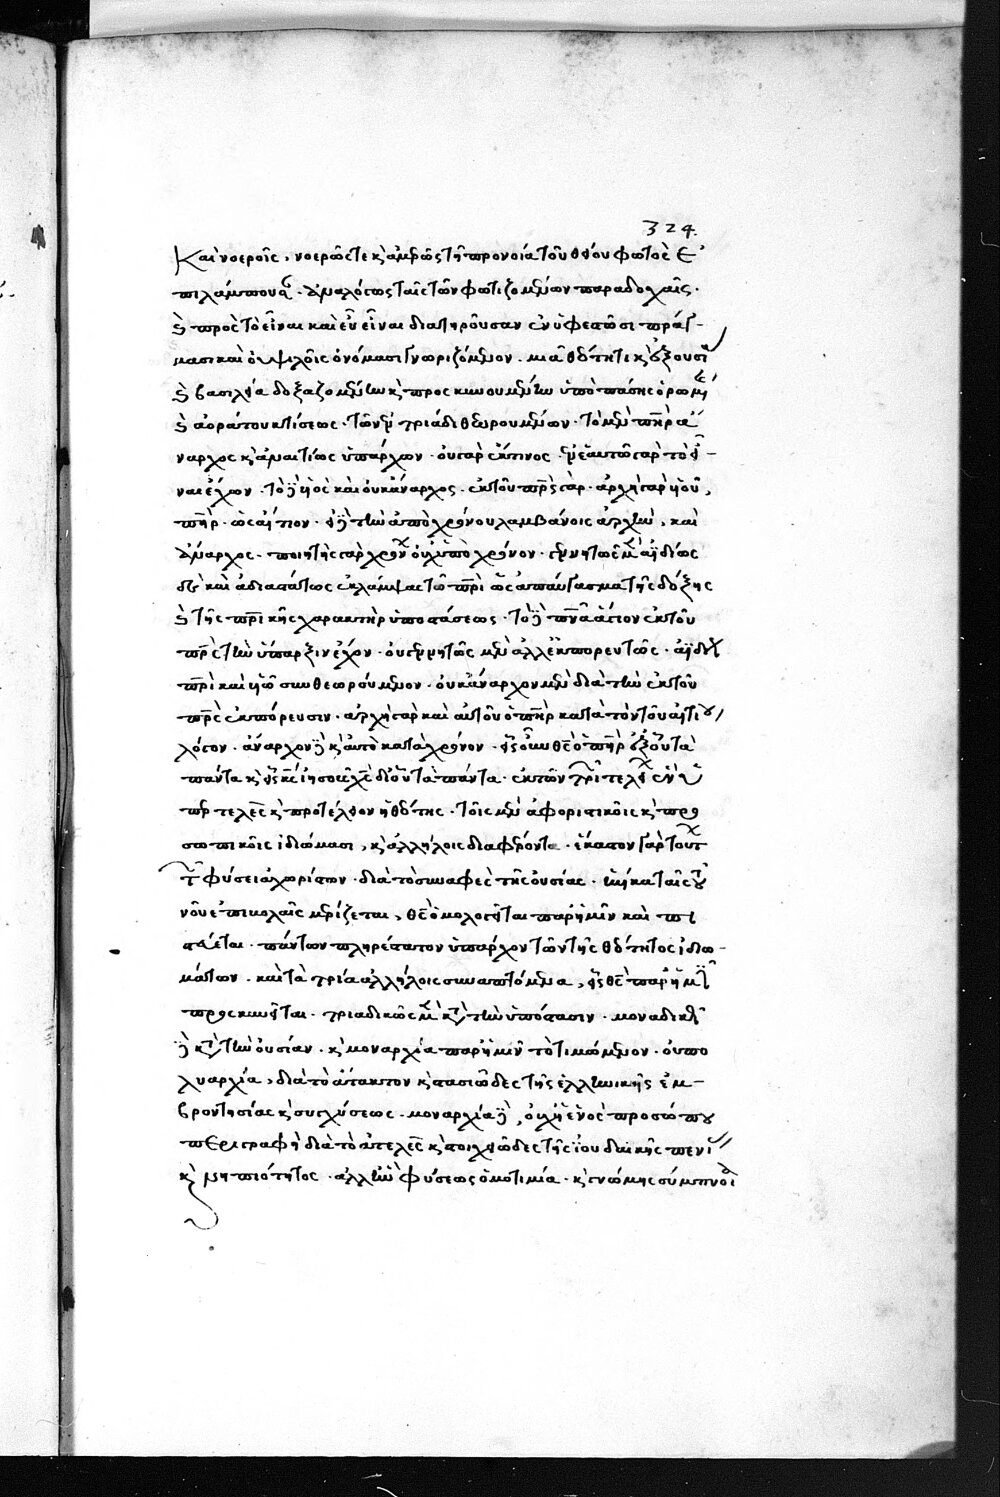 324.
Καὶ νοεροῖς, νοερῶς τε κ̀ ἀμερῶς τῆ προνοία τοῦ θείου φωτὸς ἐ
πιλάμπουσα. ἀναλόγως ταῖς τῶν φωτιζομένων παραδοχαῖς.
κ̀ πρὸς τὸ εἶναι καὶ εὖ εἶναι διατηροῦσαν ἐν ὑφεστῶσι πράγ-
μασι καὶ οὐ ψιλοῖς ὀνόμασι γνωριζόμενον. μιᾶ θεότητι κ̀ ἐξουσία
κ̀ βασιλεία δοξαζομένην κ̀ προσκυνουμένην ὑπὸ πάσης ὁρωμένης
κ̀ ἀοράτου κτίσεως. τῶν ἐν τριάδι θεωρουμένων. τὸ μὲν πηρ ἄ
ναρχος κ̀ ἀναιτίως ὑπάρχων. οὐ γὰρ ἔκ τινος. ἐν ἑαυτῶ γὰρ τὸ εἶ-
ναι ἔχων. τὸ δὲ ὑιὸς καὶ οὐκ ἄναρχος. ἐκ τοῦ πρς γάρ. ἀρχὴ γὰρ ὑιοῦ,
πηρ. ὡς αἴτιον. εἰ δὲ τὴν ἀπὸ χρόνου λαμβάνοις ἀρχὴν, καὶ
ἄναρχος. ποιητὴς γὰρ χρόνων οὐχ ὑπὸ χρόνον. γεννητῶς μὲν ἀϊδίως
δὲ καὶ ἀδιαστάτως ἐκλάμψας τῶ πρὶ ὡς ἀπαύγασμα τῆς δόξης
κ̀ τῆς πρικῆς χαρακτὴρ ὑποστάσεως. τὸ δὲ πνα ἅγιον ἐκ τοῦ
πρς τὴν ὕπαρξιν ἔχον. οὐ γεννητῶς μὲν ἀλλ' ἐκπορευτῶς. ἀϊδίως
πρὶ καὶ ὑιῶ συνθεωρούμενον. οὐκ ἄναρχον μὲν διὰ τὴν ἐκ τοῦ
πρς ἐκπόρευσιν. ἀρχὴ γὰρ καὶ αὐτοῦ ὁ πηρ κατὰ τὸν τοῦ αἰτίου
λόγον. ἄναρχον δὲ κ̀ αὐτὸ κατὰ χρόνον. εἷς οὖν θς ὁ πηρ ἐξ οὗ τὰ
πάντα κ̀ εἷς κς ἰησοῦς χς δι οὗ τὰ πάντα. ἐκ τῶν τριῶν τελείων ἓν
ὑπερτελὲς κ̀ προτέλειον ἡ θεότης. τοῖς μὲν ἀφοριστικοῖς κ̀ προ
σωπικοῖς ἰδιώμασι, κ̀ ἀλλήλοις διαφέροντα. ἕκαστον γὰρ τούτων
τῆ φύσει ἀχωρίστων. διὰ τὸ συναφὲς τῆς οὐσίας. ἡνίκα ταῖς τοῦ
νοῦ ἐπινοίαις μερίζεται, θς ὁμολογεῖται παρ' ἡμῖν καὶ πι
στεύεται. πάντων πληρέστατον ὑπάρχον τῶν τῆς θεότητος ἰδιω-
μάτων. καὶ τὰ τρία ἀλλήλοις συναπτόμενα, εἷς θς παρ' ἡμῖν
προσκυνεῖται. τριαδικῶς μὲν κατὰ τὴν ὑπόστασιν. μοναδικῶς
δὲ κατὰ τὴν οὐσίαν. κ̀ μοναρχία παρ' ἡμῖν τὸ τιμώμενον. οὐ πο
λυαρχία, διὰ τὸ ἄτακτον κ̀ στασιῶδες τῆς ἑλληνικῆς ἐμ-
βροντησίας κ̀ συγχύσεως. μοναρχία δὲ, οὐχ ἡ ἑνὸς προσώπου
περιγραφὴ διὰ τὸ ἀτελὲς κ̀ στοιχειῶδες τῆς ἰουδαικῆς πενίας
κ̀ νηπιότητος. ἀλλ' ἣν φύσεως ὁμοτιμία. κ̀ γνώμης σύμπνοια